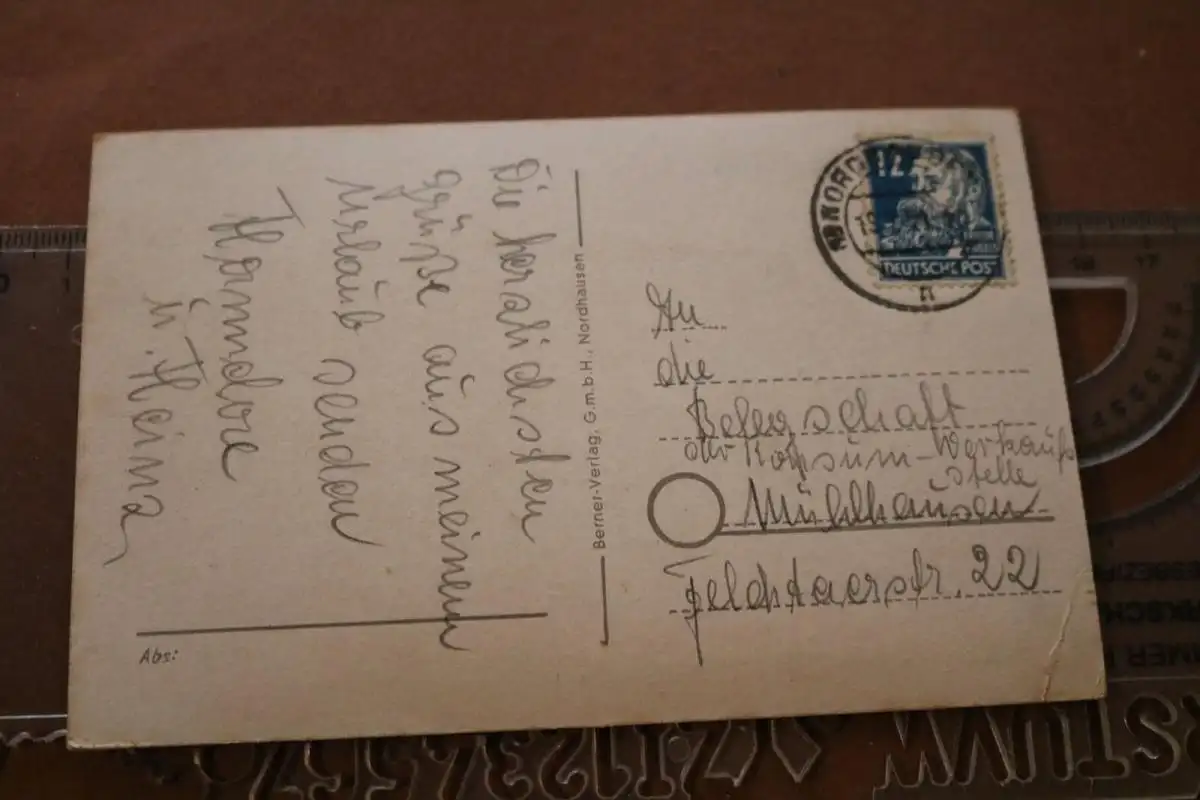 Die herzlichsten
Grüße aus meinem
Urlaub senden
Hannelore
u. Heinz
Abs:
Berner-Verlag, G.m.b.H., Nordhausen
12
DEUTSCHE POST
An
die
Belegschaft
der Konsum-Verkaufs
stelle
Mühlhausen
Felchtaerstr. 22